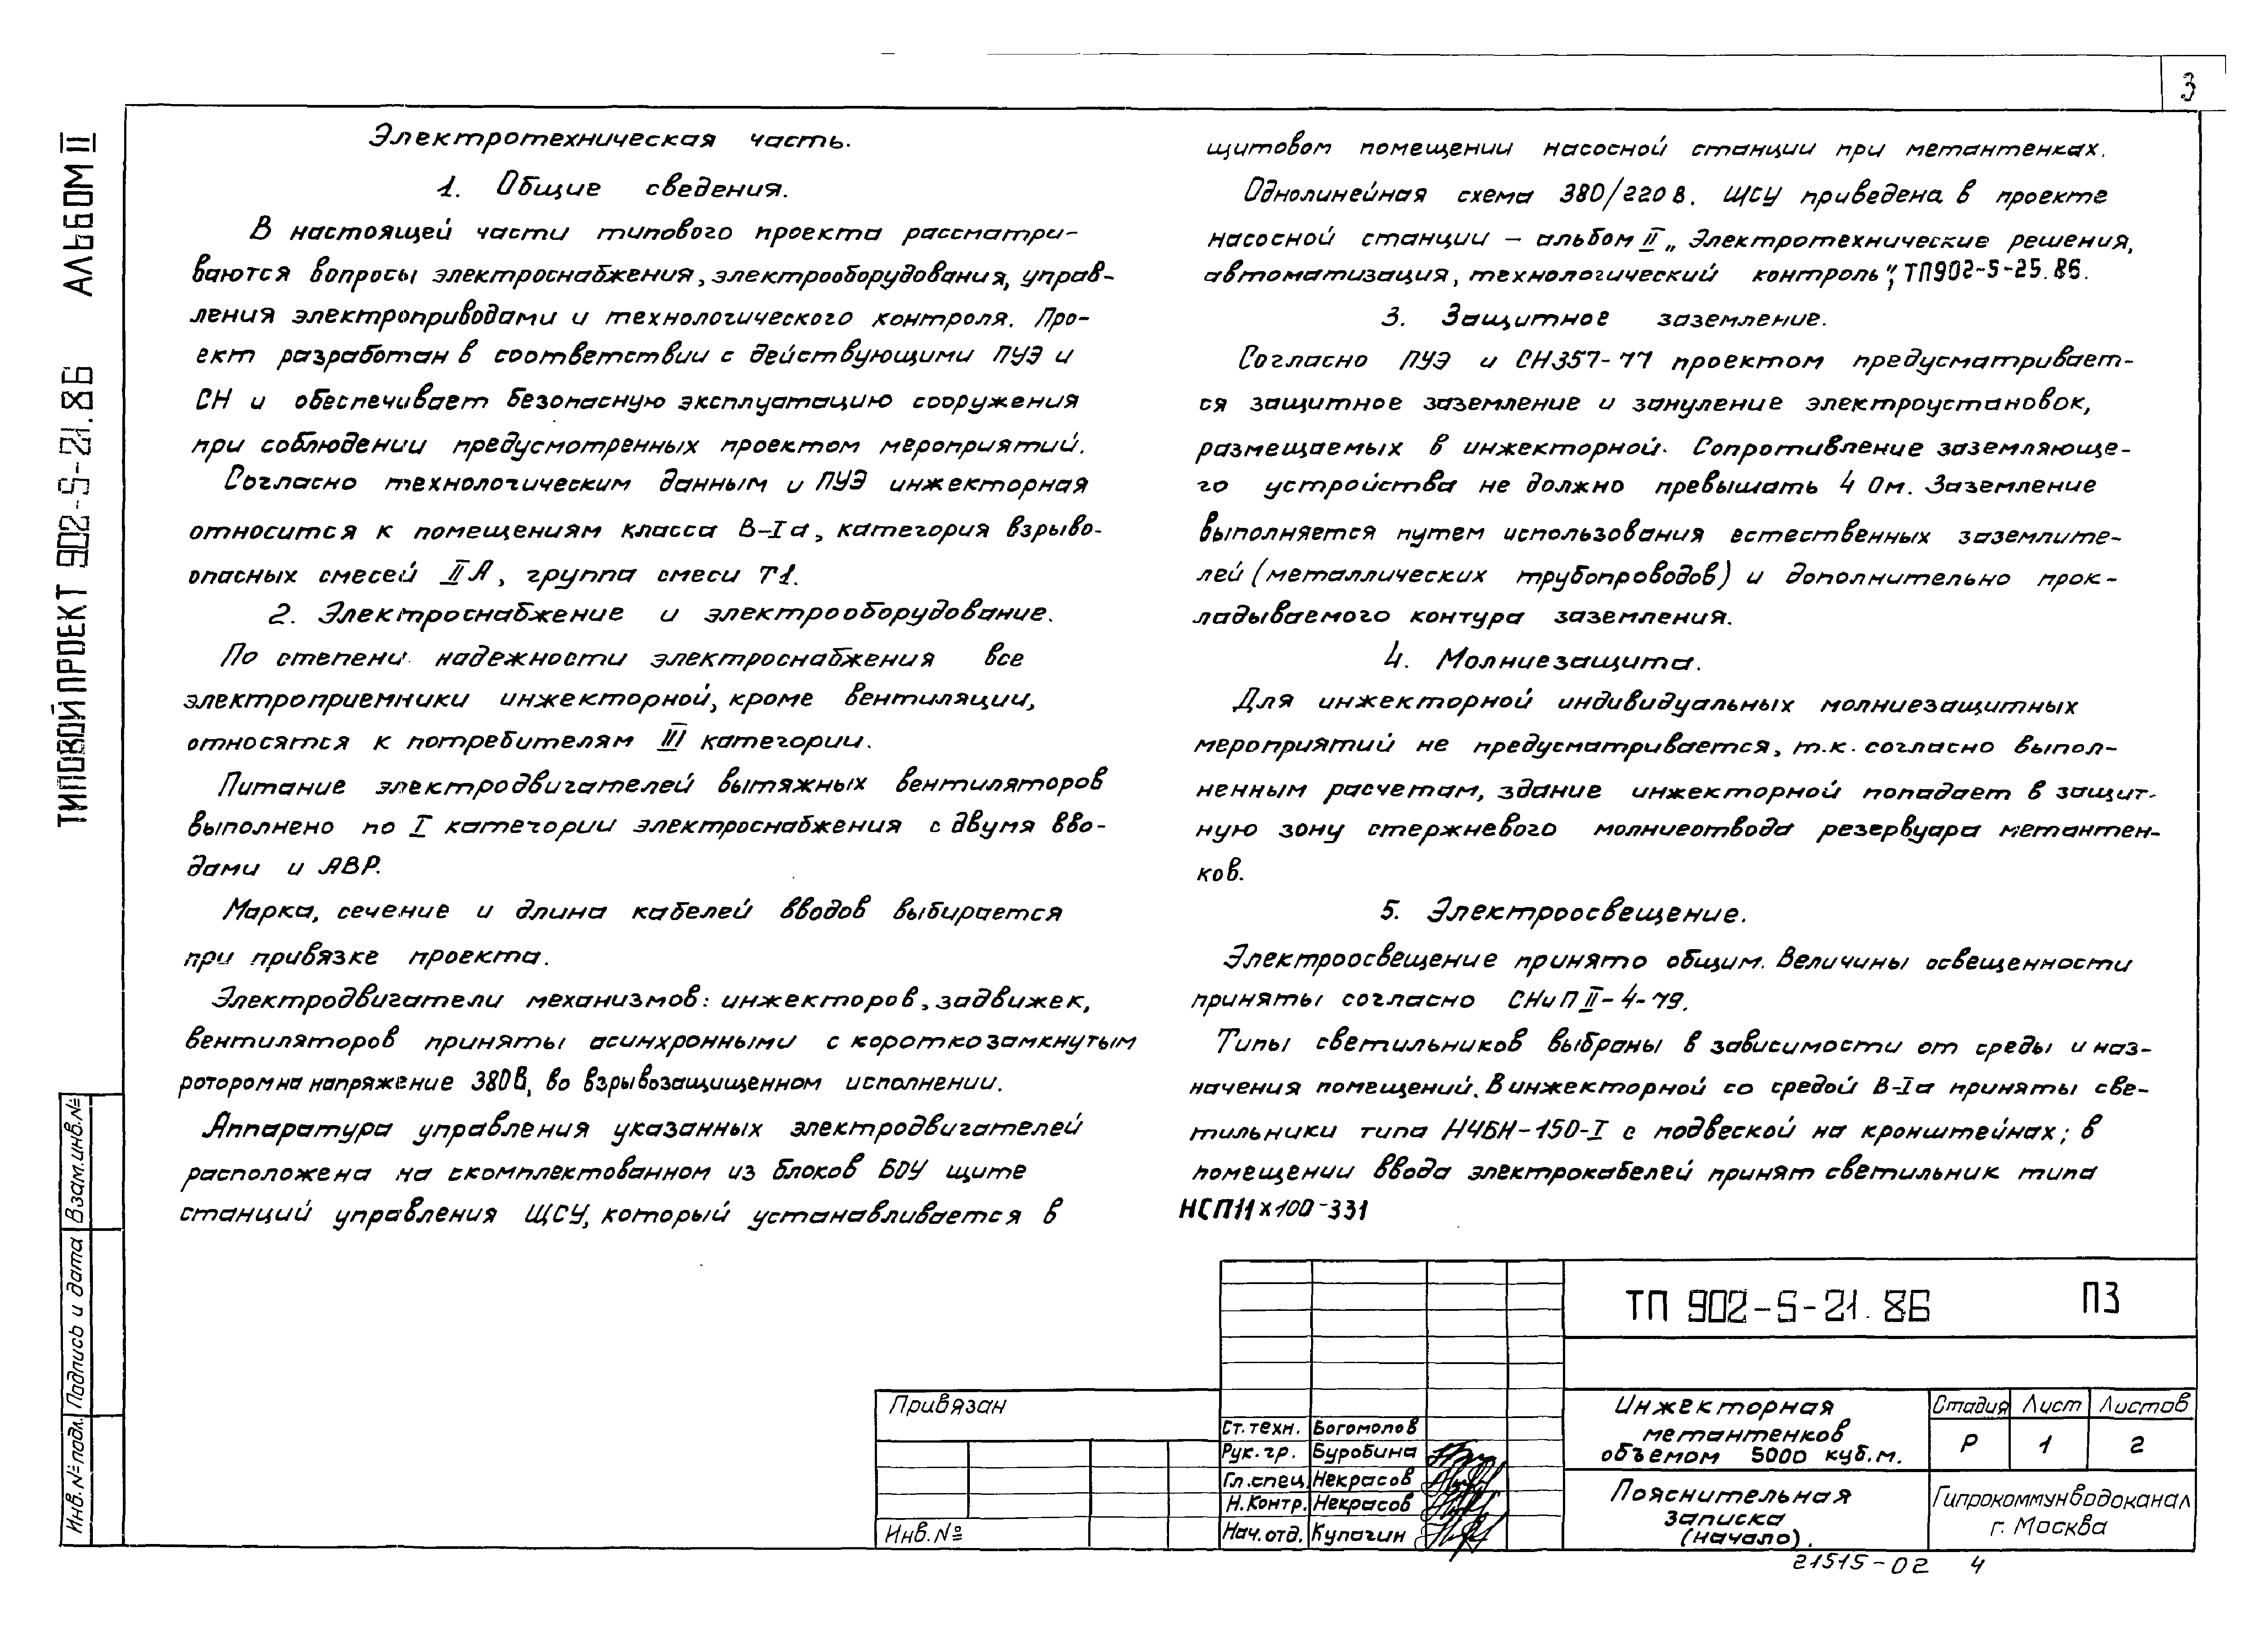 3
ТИПОВОЙ ПРОЕКТ 902-5-21.86 АЛЬБОМ II
Электротехническая часть.
1. Общие сведения.
В настоящей части типового проекта рассматри-
ваются вопросы электроснабжения, электрооборудования, управ-
ления электроприводами и технологического контроля. Про-
ект разработан в соответствии с действующими ПУЭ и
СН и обеспечивает безопасную эксплуатацию сооружения
при соблюдении предусмотренных проектом мероприятий.
Согласно технологическим данным и ПУЭ инжекторная
относится к помещениям класса В-Iа, категория взрыво-
опасных смесей IIА, группа смеси Т1.
2. Электроснабжение и электрооборудование.
По степени надежности электроснабжения все
электроприемники инжекторной, кроме вентиляции,
относятся к потребителям III категории.
Питание электродвигателей вытяжных вентиляторов
выполнено по I категории электроснабжения с двумя вво-
дами и АВР.
Марка, сечение и длина кабелей вводов выбирается
при привязке проекта.
Электродвигатели механизмов: инжекторов, задвижек,
вентиляторов приняты асинхронными с короткозамкнутым
ротором на напряжение 380В, во взрывозащищенном исполнении.
Аппаратура управления указанных электродвигателей
расположена на скомплектованном из блоков БОУ щите
станций управления ЩСУ, который устанавливается в
щитовом помещении насосной станции при метантенках.
Однолинейная схема 380/220 В. ЩСУ приведена в проекте
насосной станции – альбом II „Электротехнические решения,
автоматизация, технологический контроль", ТП902-5-25.86.
3. Защитное заземление.
Согласно ПУЭ и СН357-77 проектом предусматривает-
ся защитное заземление и зануление электроустановок,
размещаемых в инжекторной. Сопротивление заземляюще-
го устройства не должно превышать 4 Ом. Заземление
выполняется путем использования естественных заземлите-
лей (металлических трубопроводов) и дополнительно прок-
ладываемого контура заземления.
4. Молниезащита.
Для инжекторной индивидуальных молниезащитных
мероприятий не предусматривается, т.к. согласно выпол-
ненным расчетам, здание инжекторной попадает в защит-
ную зону стержневого молниеотвода резервуара метантен-
ков.
5. Электроосвещение.
Электроосвещение принято общим. Величины освещенности
приняты согласно СНиП II-4-79.
Типы светильников выбраны в зависимости от среды и наз-
начения помещений. В инжекторной со средой В-Iа приняты све-
тильники типа Н4БН-150-I с подвеской на кронштейнах; в
помещении ввода электрокабелей принят светильник типа
НСП11х100-331
Взам.инв.№
Подпись и дата
Инв.№подл.
ТП 902-5-21.86 ПЗ
Привязан
Инв.№
Ст.техн. Богомолов
Рук.гр. Буробина
Гл.спец. Некрасов
Н.Контр. Некрасов
Нач.отд. Купагин
Инжекторная
метантенков
объемом 5000 куб.м.
Стадия Лист Листов
Р 1 2
Пояснительная
записка
(начало).
Гипрокоммунводоканал
г. Москва
21515-02 4